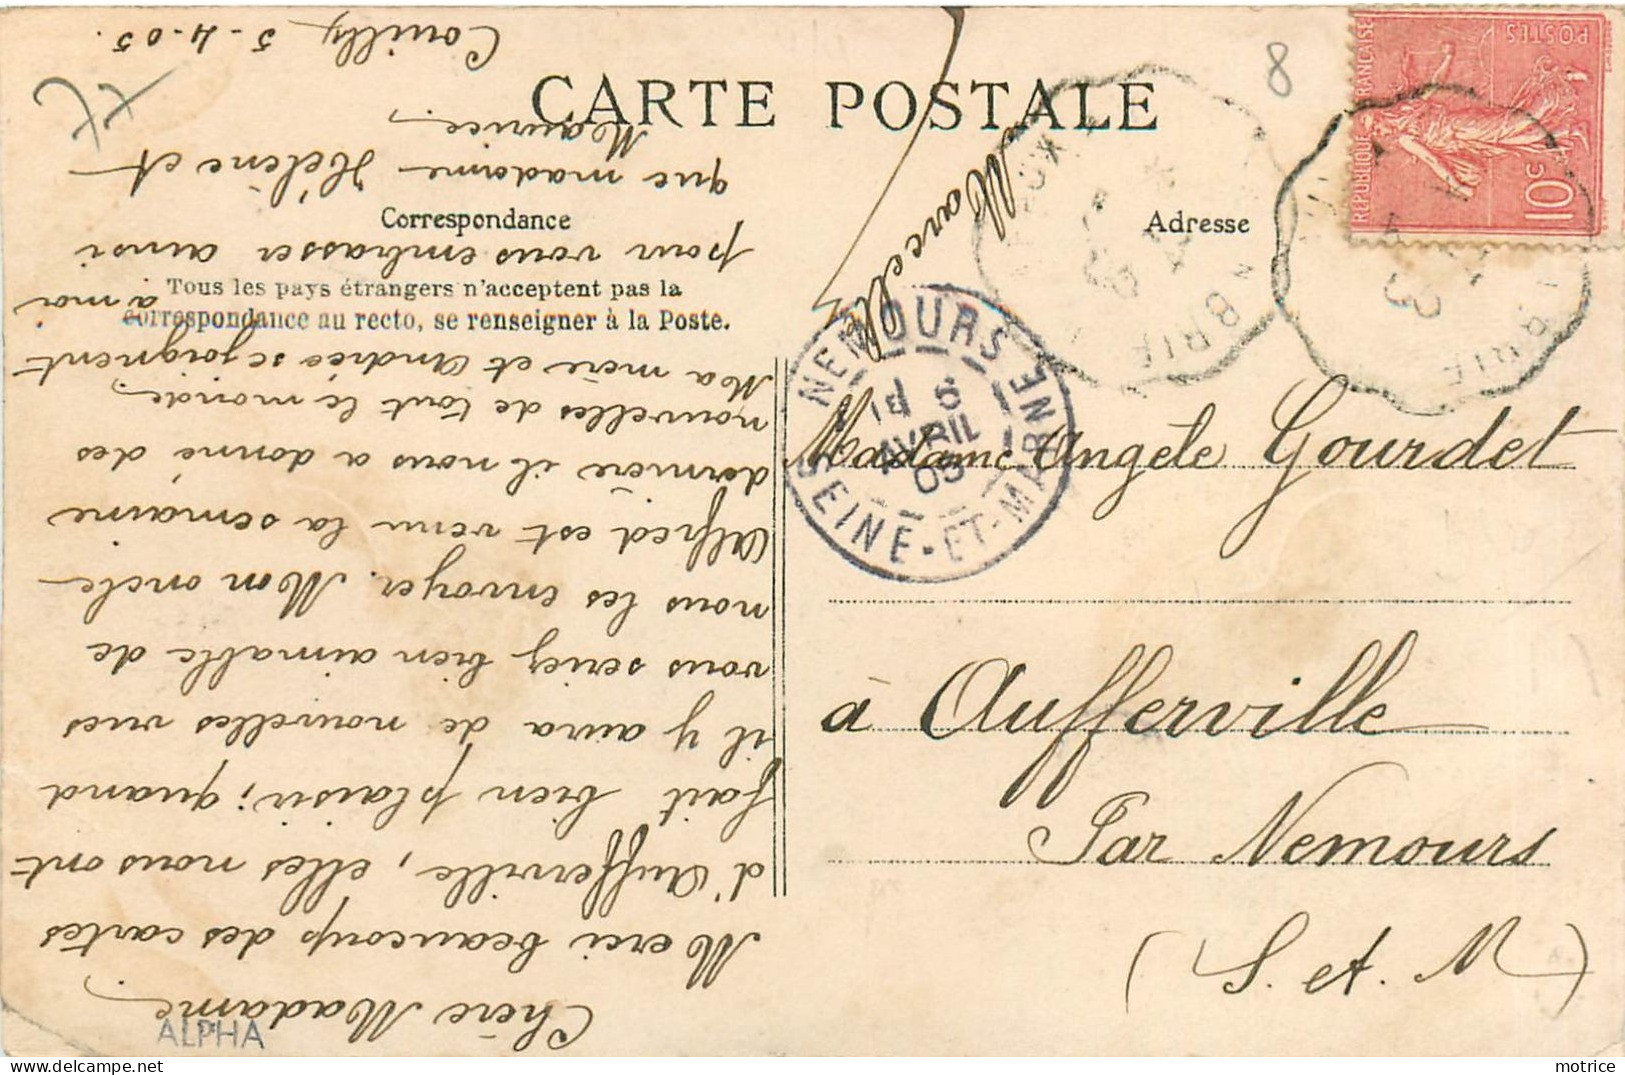 CARTE POSTALE
Correspondance
Adresse
Tous les pays étrangers n'acceptent pas la
correspondance au recto, se renseigner à la Poste.
RÉPUBLIQUE FRANÇAISE
POSTES
10c
8
NEMOURS
6
AVRIL
05
SEINE-ET-MARNE
BRIE
BRIE
Madame Angèle Gourdet
à Aufferville
Par Nemours
(S. et. M)
Couilly 5-4-05.
Chère Madame
Merci beaucoup des cartes
d'Aufferville, elles nous ont
fait bien plaisir; quand
il y aura de nouvelles vues
vous seriez bien aimable de
nous les envoyer. Mon oncle
Alfred est venu la semaine
dernière il nous a donné des
nouvelles de tout le monde.
Ma mère et Andrée se joignent
à moi
pour vous embrasser ainsi
que madame Hélène et
Maurice.
Marcelle
ALPHA
motrice